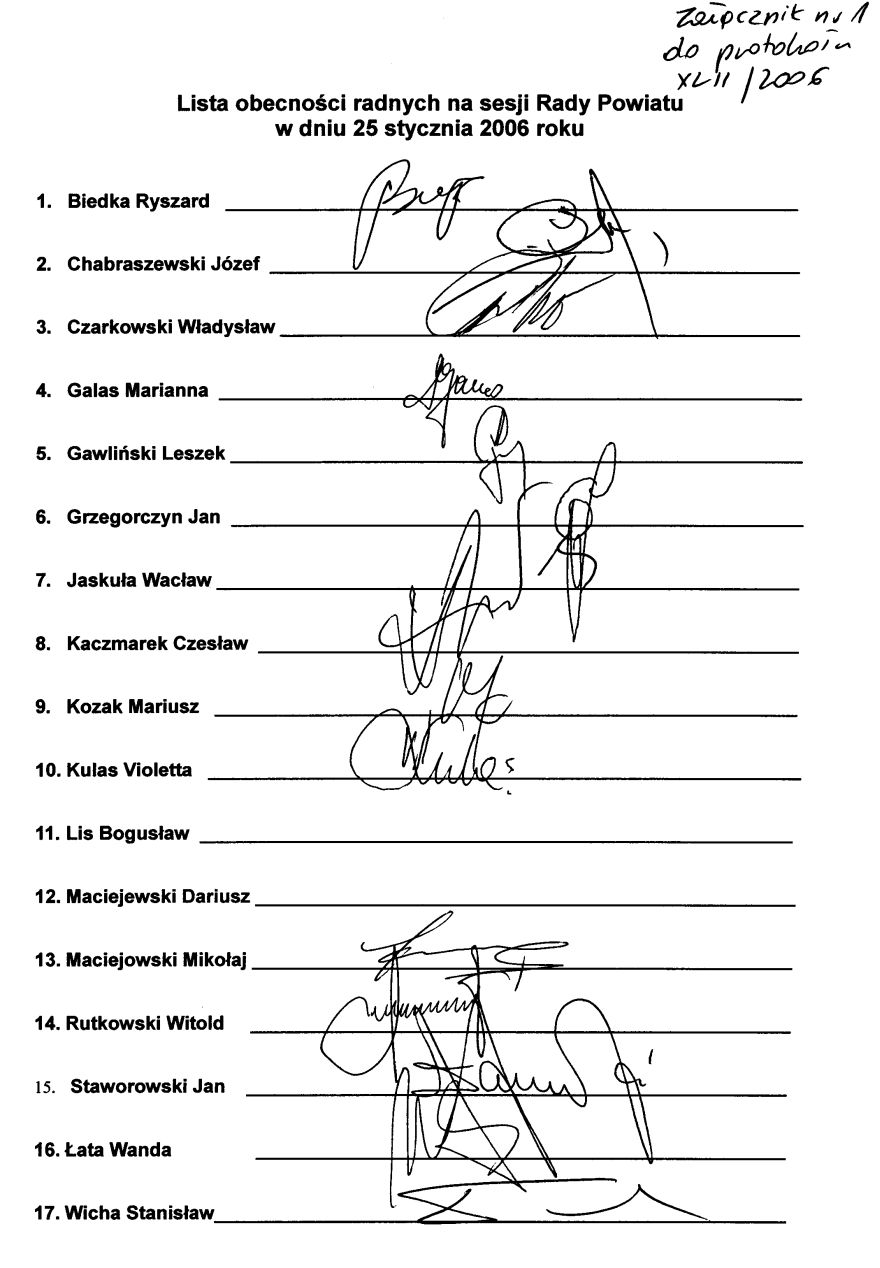 Załącznik nr 1
do protokołu
XLII/2006
Lista obecności radnych na sesji Rady Powiatu
w dniu 25 stycznia 2006 roku
1. Biedka Ryszard
2. Chabraszewski Józef
3. Czarkowski Władysław
4. Galas Marianna
5. Gawliński Leszek
6. Grzegorczyn Jan
7. Jaskuła Wacław
8. Kaczmarek Czesław
9. Kozak Mariusz
10. Kulas Violetta
11. Lis Bogusław
12. Maciejewski Dariusz
13. Maciejowski Mikołaj
14. Rutkowski Witold
15. Staworowski Jan
16. Łata Wanda
17. Wicha Stanisław